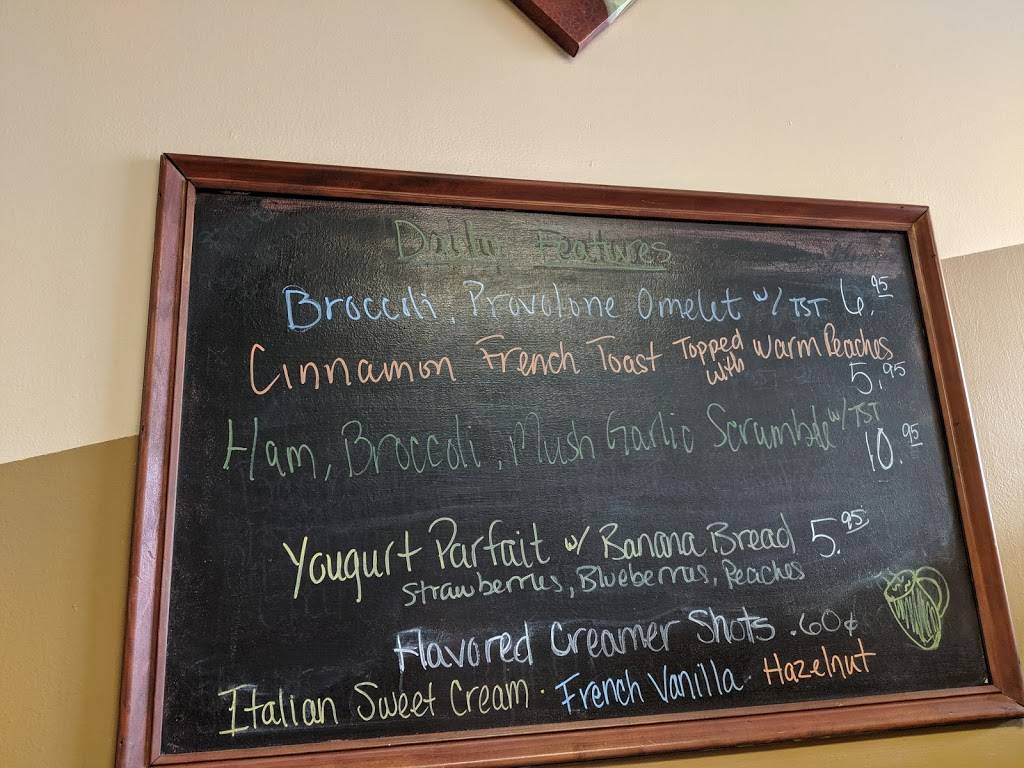 Daily Features
Broccoli, Provolone Omelet w/ TST 6.95
Cinnamon French Toast Topped with Warm Peaches
5.95
Ham, Broccoli, Mush Garlic Scrambled w/ TST
10.95
Yougurt Parfait w/ Banana Bread 5.95
Strawberries, Blueberries, Peaches
Flavored Creamer Shots .60¢
Italian Sweet Cream · French Vanilla · Hazelnut